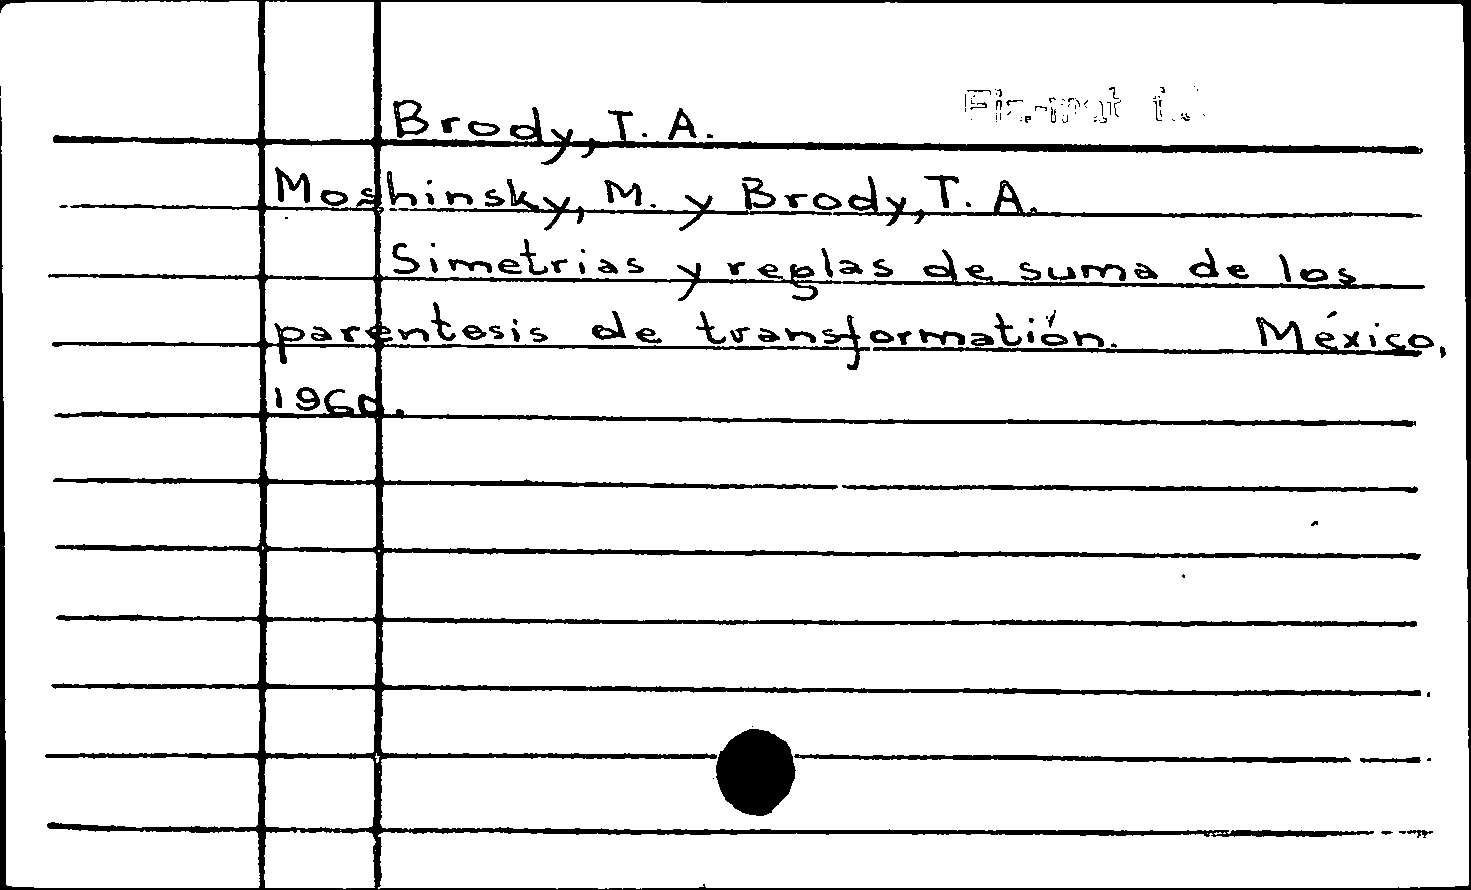 Brody, T. A.
Moshinsky, M. y Brody, T. A.
Simetrias y reglas de suma de los
parentesis de transformatión. México,
1960.